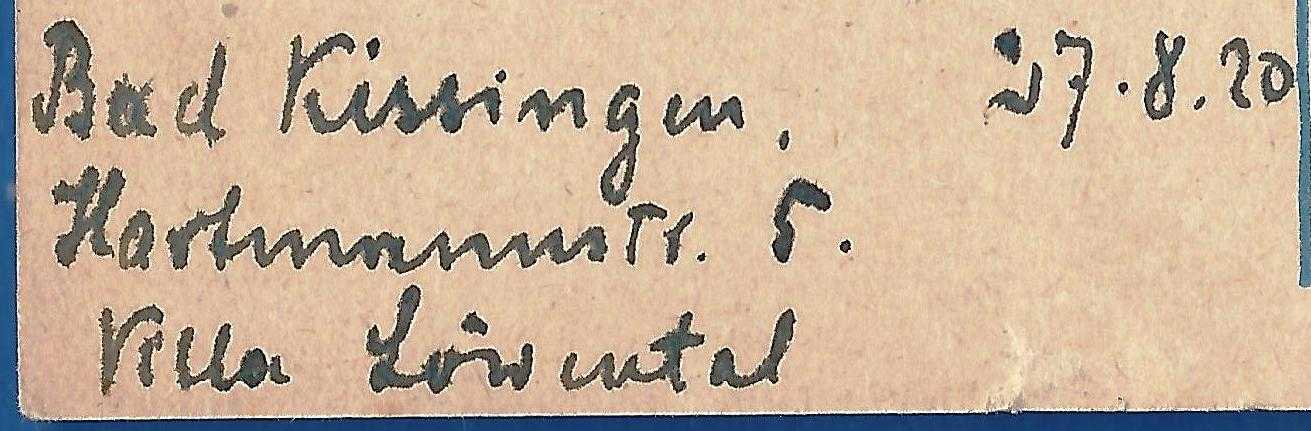 Bad Kissingen, 27.8.20
Hartmannstr. 5.
Villa Löwental